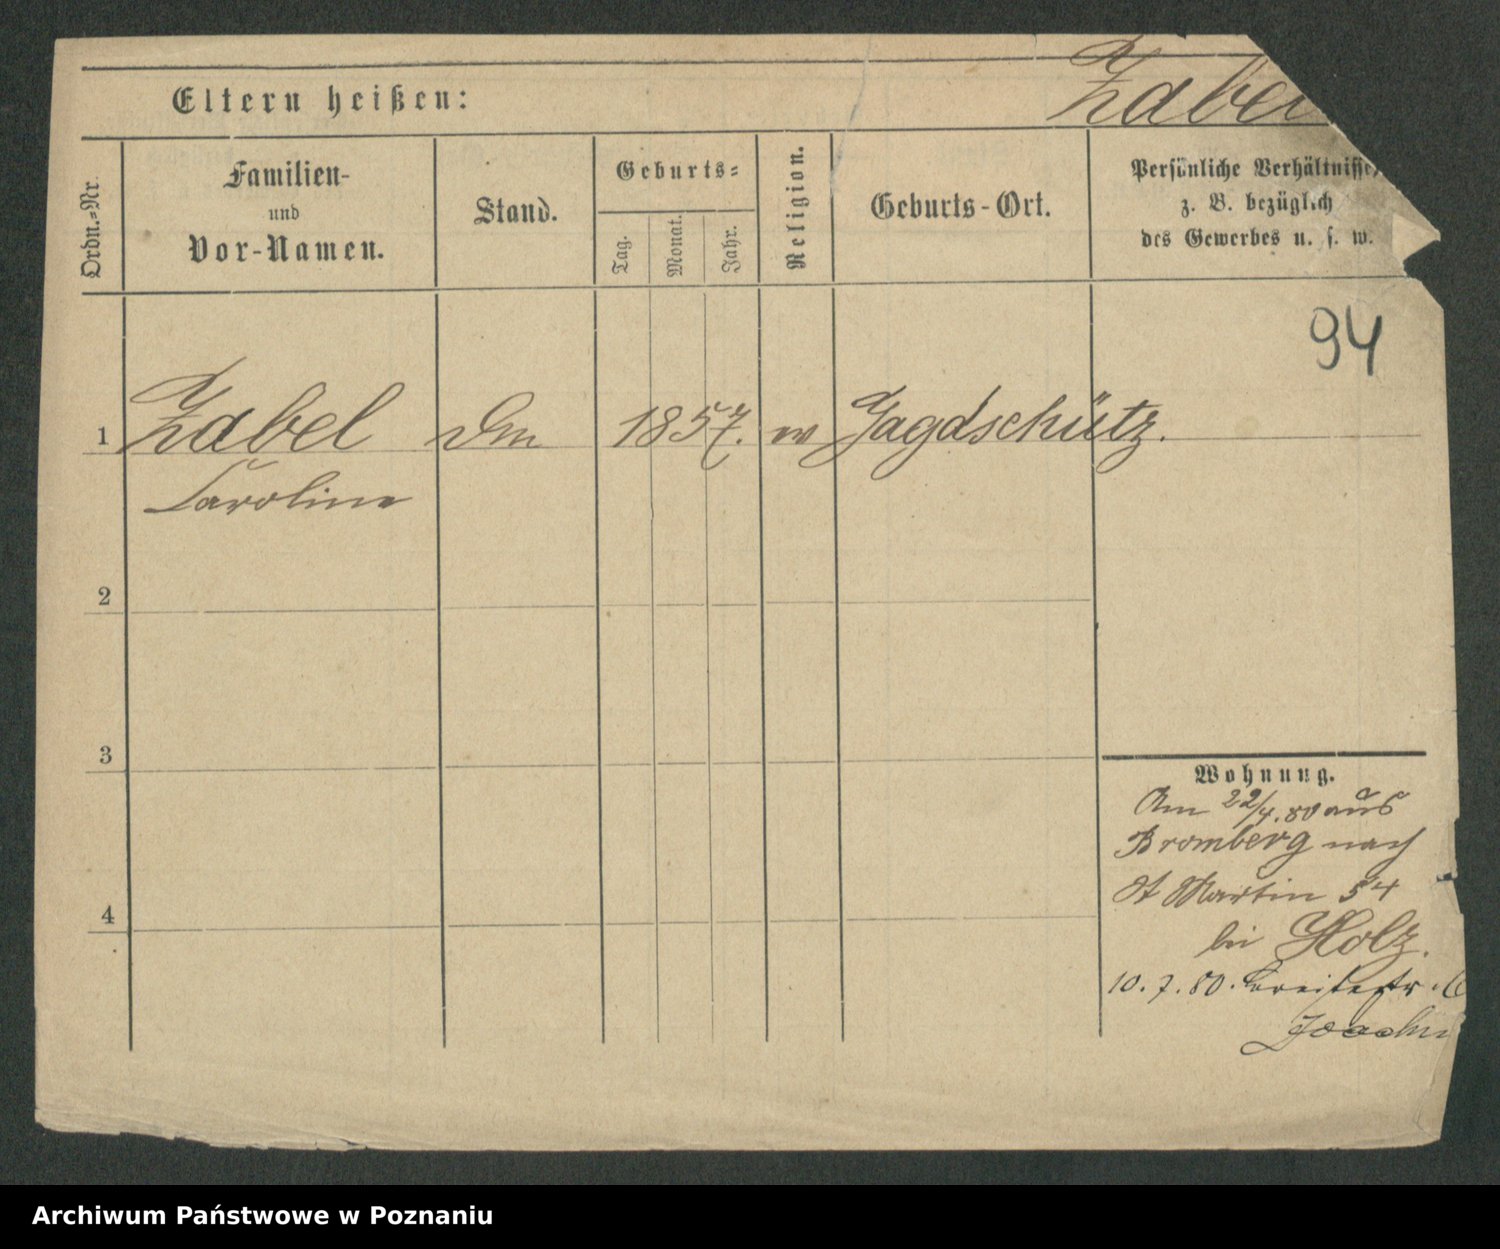 Zabel
Eltern heißen:
Ordn.-Nr.
Familien-
und
Vor-Namen.
Stand.
Geburts-
Tag.
Monat.
Jahr.
Religion.
Geburts-Ort.
Persönliche Verhältnisse,
z. B. bezüglich
des Gewerbes u. s. w.
94
1 Zabel 1857. Jagdschütz.
Caroline
2
3
4
Wohnung.
Am 22/4. 80 aus
Bromberg nach
St Martin 54
bei Holz.
10.7.80. Breitestr.